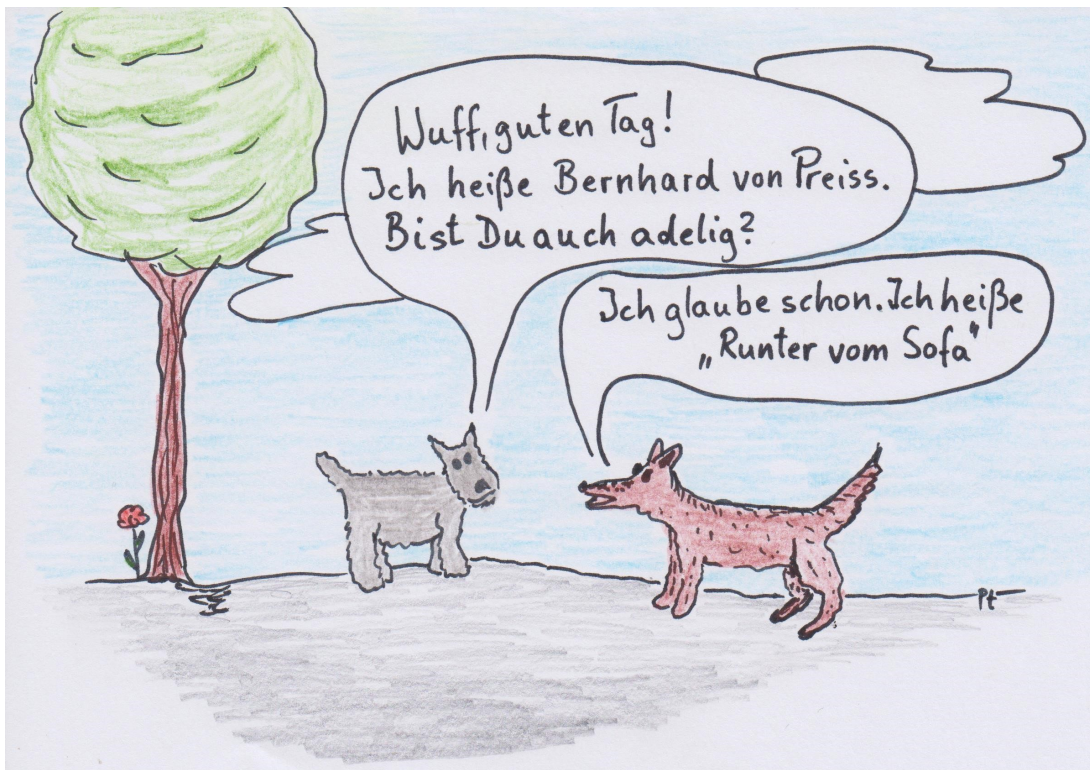 Wuff, guten Tag!
Ich heiße Bernhard von Preiss.
Bist Du auch adelig?
Ich glaube schon. Ich heiße
„Runter vom Sofa“
Pt